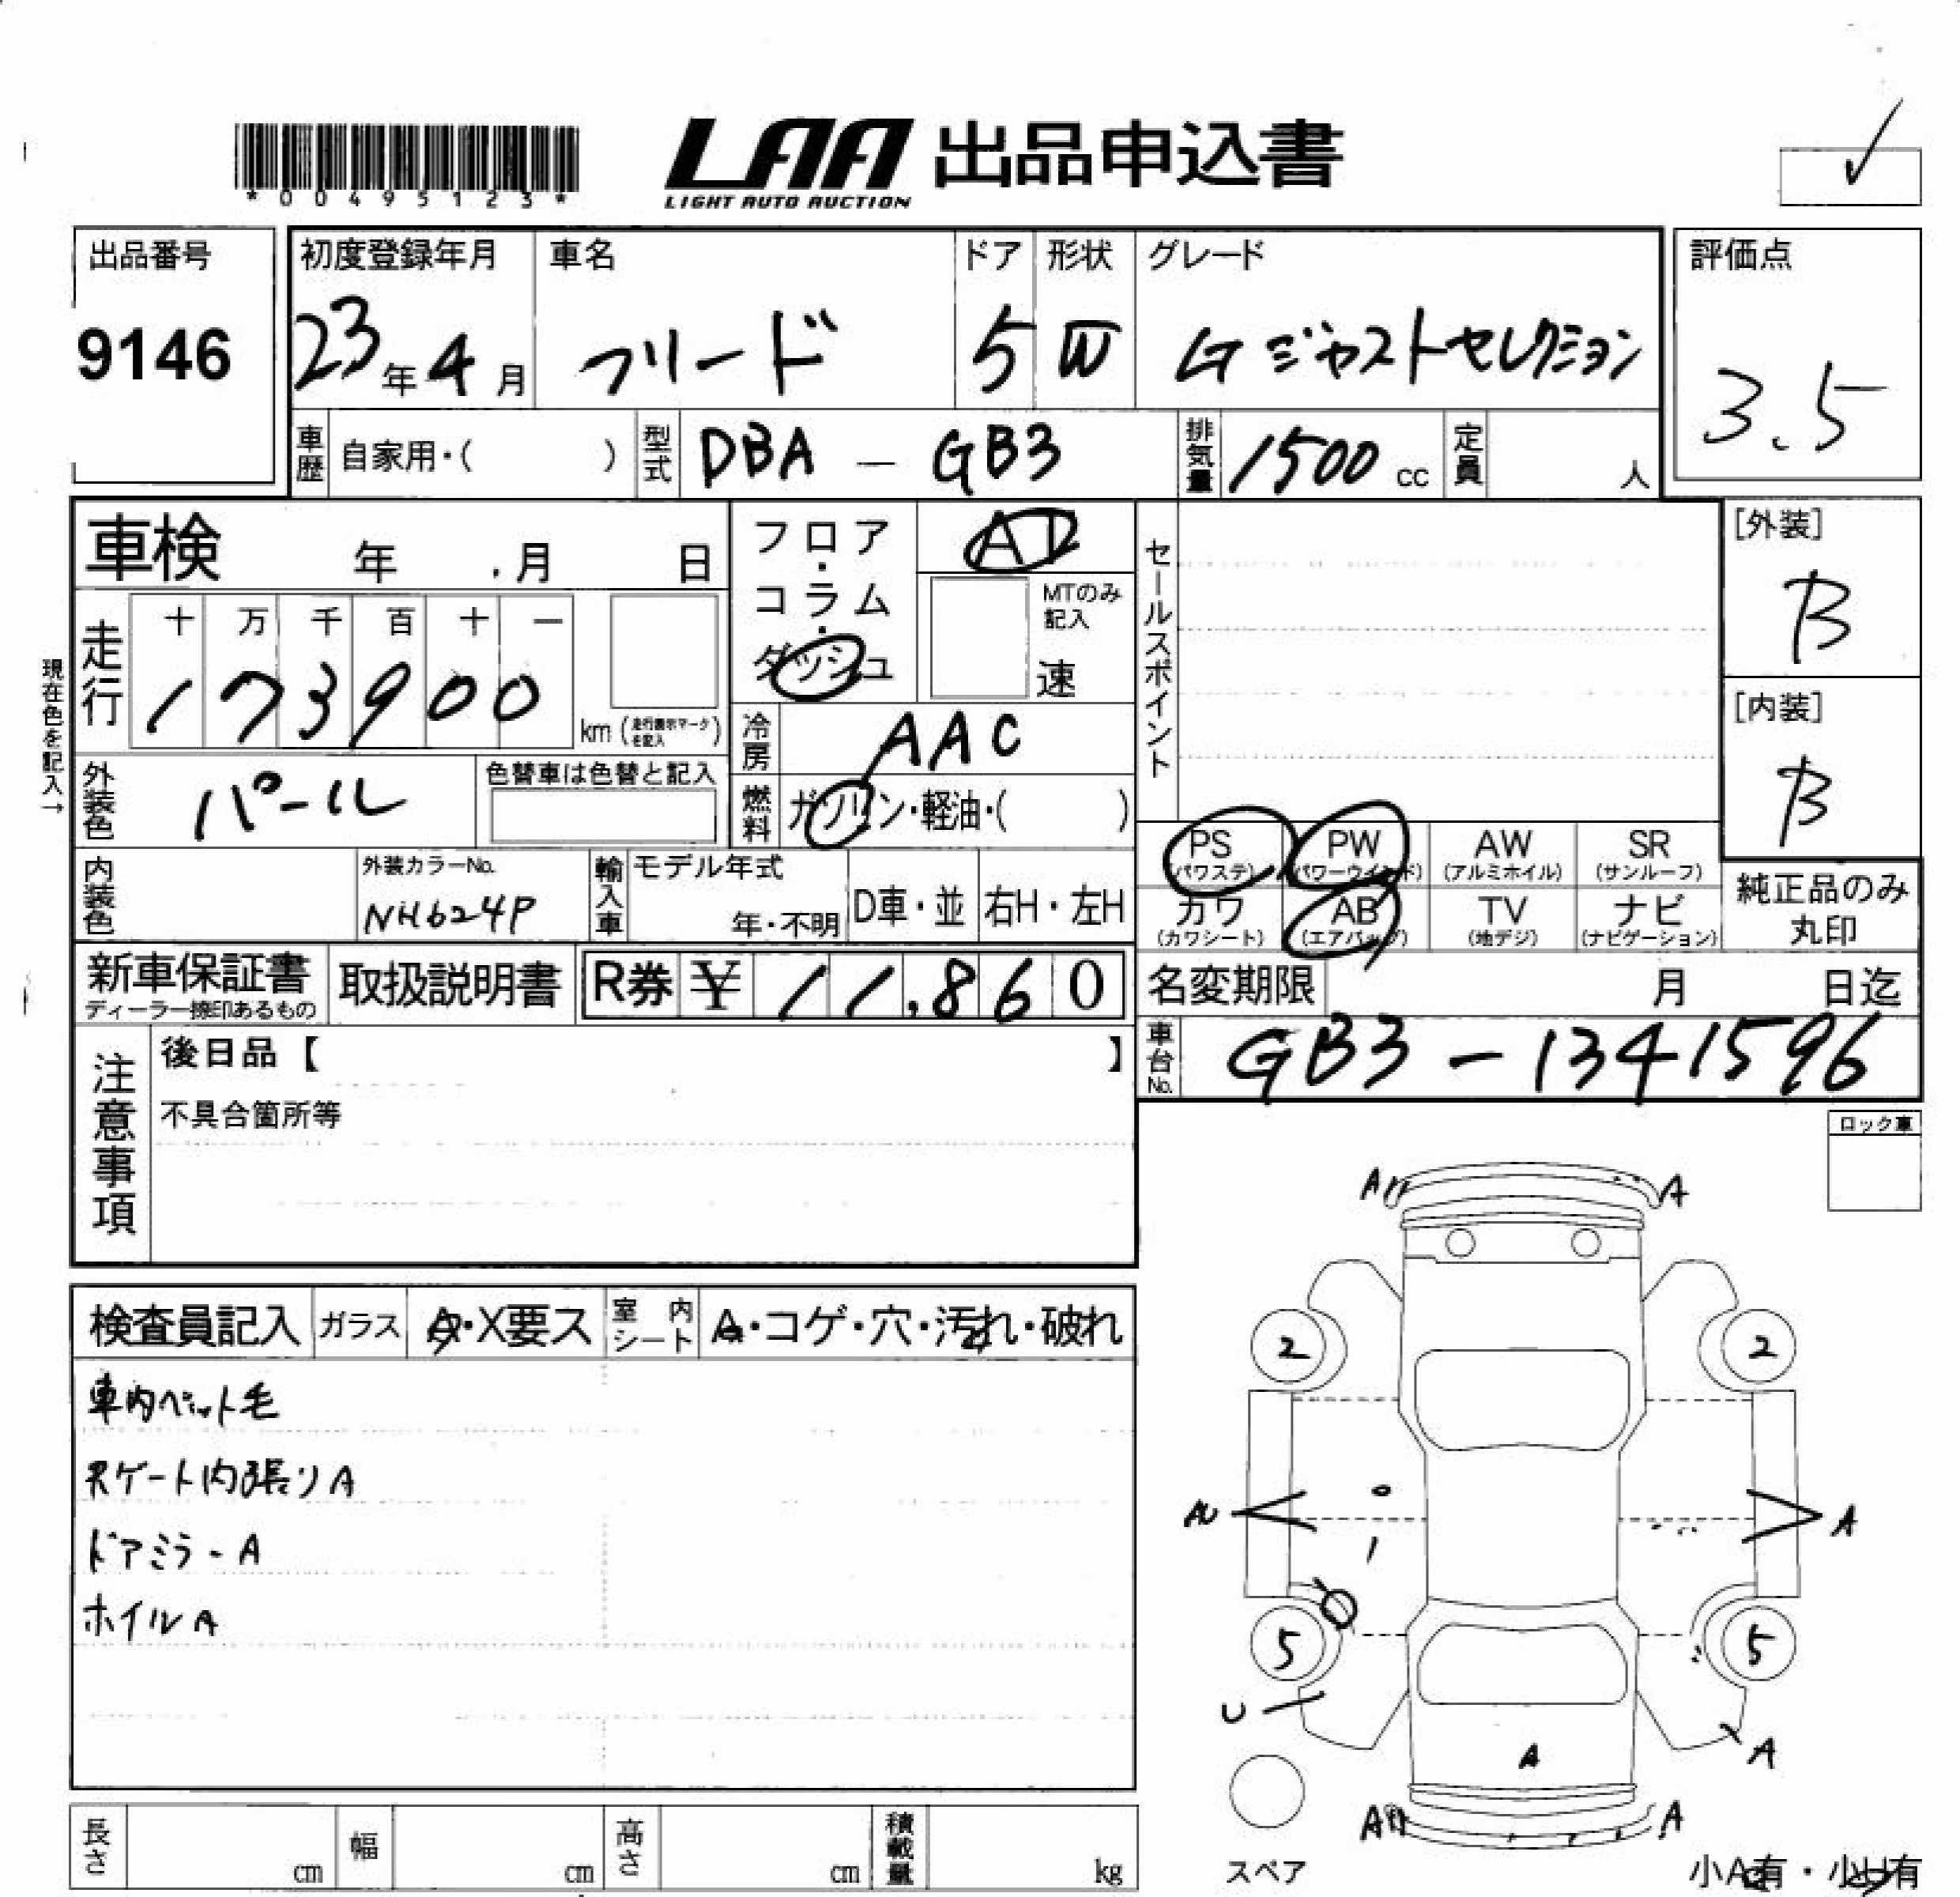 *00495123*
LAA 出品申込書
LIGHT AUTO AUCTION
出品番号 初度登録年月 車名 ドア 形状 グレード 評価点
9146 23年4月 フリード 5 W Gジャストセレクション 3.5
車歴 自家用・( ) 型式 DBA-GB3 排気量 1500cc 定員 人
車検 年 月 日
フロア・コラム・ダッシュ AT
MTのみ記入 速
セールスポイント
[外装] B
[内装] B
走行 十 万 千 百 十 一
173900 km (走行表示マークを記入)
現在色を記入→
冷房 AAC
外装色 パール 色替車は色替と記入
燃料 ガソリン・軽油・( )
PS (パワステ) PW (パワーウインド) AW (アルミホイル) SR (サンルーフ)
カワ (カワシート) AB (エアバッグ) TV (地デジ) ナビ (ナビゲーション)
純正品のみ丸印
内装色 外装カラーNo. NH624P 輸入車 モデル年式 年・不明 D車・並 右H・左H
新車保証書 取扱説明書 R券 ¥ 11,860
ディーラー捺印あるもの
名変期限 月 日迄
車台No. GB3-1341596
注意事項
後日品【 】
不具合箇所等
ロック車
検査員記入 ガラス A・X要ス 室内シート A・コゲ・穴・汚れ・破れ
車内ペット毛
Rゲート内張りA
ドアミラーA
ホイルA
A A
2 2
A
5 5
U
A A
A A
スペア
小A有・小U有
長さ cm 幅 cm 高さ cm 積載量 kg